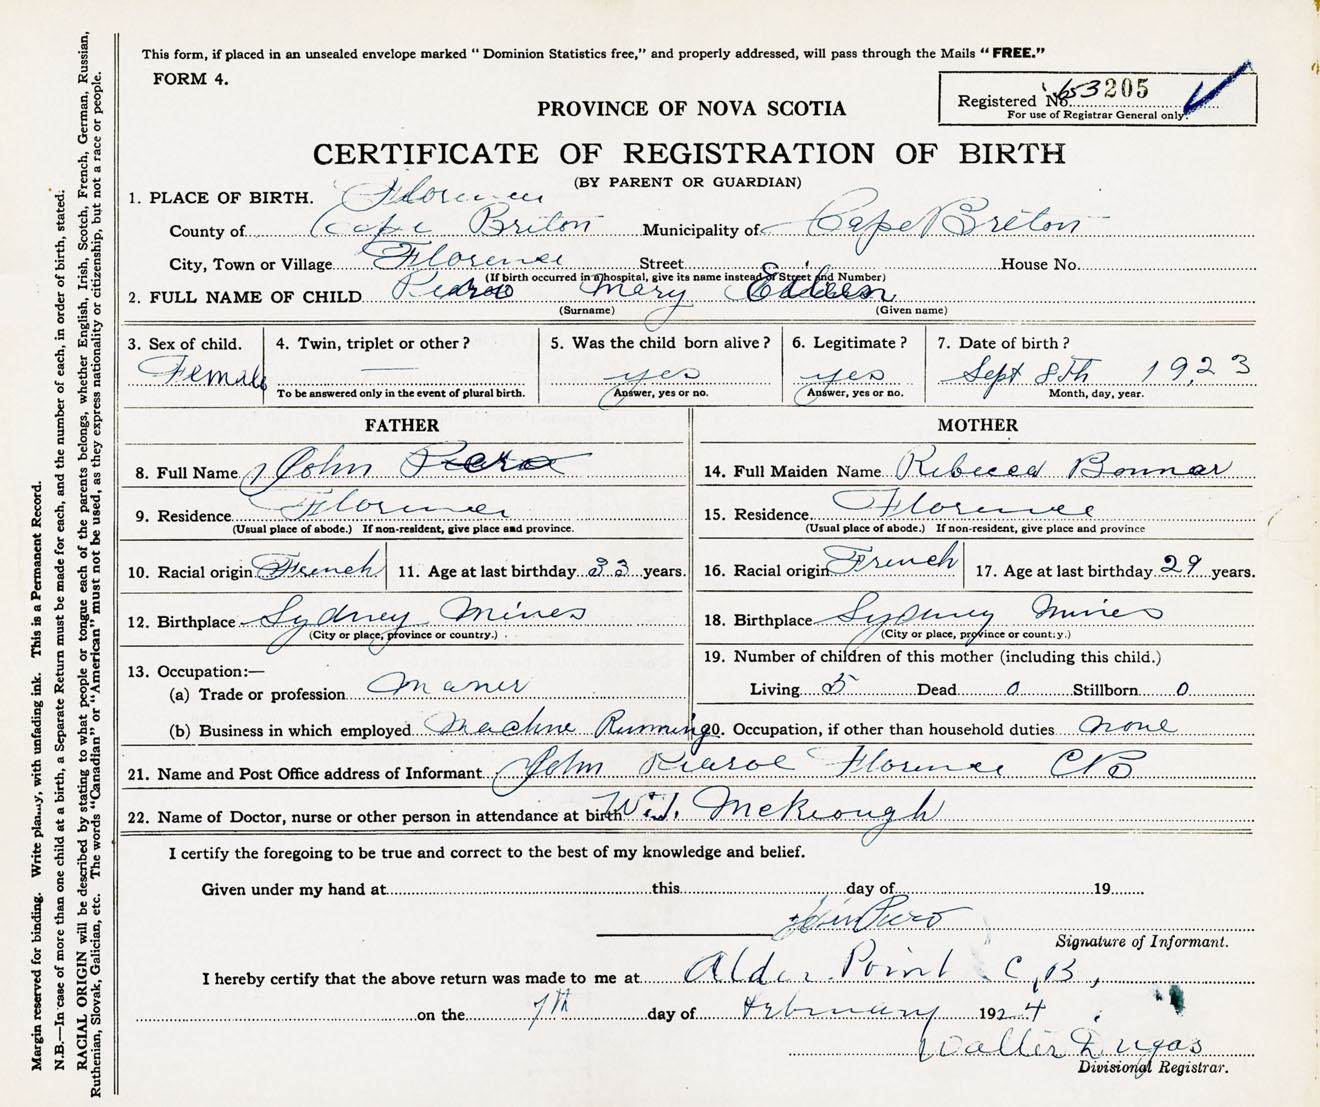 This form, if placed in an unsealed envelope marked "Dominion Statistics free," and properly addressed, will pass through the Mails "FREE."
FORM 4.
Registered No. 653205
For use of Registrar General only.
PROVINCE OF NOVA SCOTIA
CERTIFICATE OF REGISTRATION OF BIRTH
(BY PARENT OR GUARDIAN)
1. PLACE OF BIRTH. Florence
County of Cape Briton Municipality of Cape Breton
City, Town or Village Florence Street House No.
(If birth occurred in a hospital, give its name instead of Street and Number)
2. FULL NAME OF CHILD Mary Eileen
(Surname) (Given name)
3. Sex of child. 4. Twin, triplet or other? 5. Was the child born alive? 6. Legitimate? 7. Date of birth?
Female — yes yes Sept 8th 1923
To be answered only in the event of plural birth. Answer, yes or no. Answer, yes or no. Month, day, year.
FATHER MOTHER
8. Full Name John 14. Full Maiden Name Rebecca Bonnar
9. Residence Florence 15. Residence Florence
(Usual place of abode.) If non-resident, give place and province. (Usual place of abode.) If non-resident, give place and province
10. Racial origin French 11. Age at last birthday 33 years. 16. Racial origin French 17. Age at last birthday 29 years.
12. Birthplace Sydney Mines 18. Birthplace Sydney Mines
(City or place, province or country.) (City or place, province or country.)
13. Occupation:— 19. Number of children of this mother (including this child.)
(a) Trade or profession Maner Living 5 Dead 0 Stillborn 0
(b) Business in which employed Machne Running 20. Occupation, if other than household duties none
21. Name and Post Office address of Informant John Florence CB
22. Name of Doctor, nurse or other person in attendance at birth McKeough
I certify the foregoing to be true and correct to the best of my knowledge and belief.
Given under my hand at this day of 19
John Pero
Signature of Informant.
I hereby certify that the above return was made to me at Alder Point C,B,
on the 7th day of February 1924
Walter Dugas
Divisional Registrar.
Margin reserved for binding. Write plainly, with unfading ink. This is a Permanent Record.
N.B.—In case of more than one child at a birth, a Separate Return must be made for each, and the number of each, in order of birth, stated.
RACIAL ORIGIN will be described by stating to what people or tongue each of the parents belongs, whether English, Irish, Scotch, French, German, Russian,
Ruthenian, Slovak, Galician, etc. The words "Canadian" or "American" must not be used, as they express nationality or citizenship, but not a race or people.